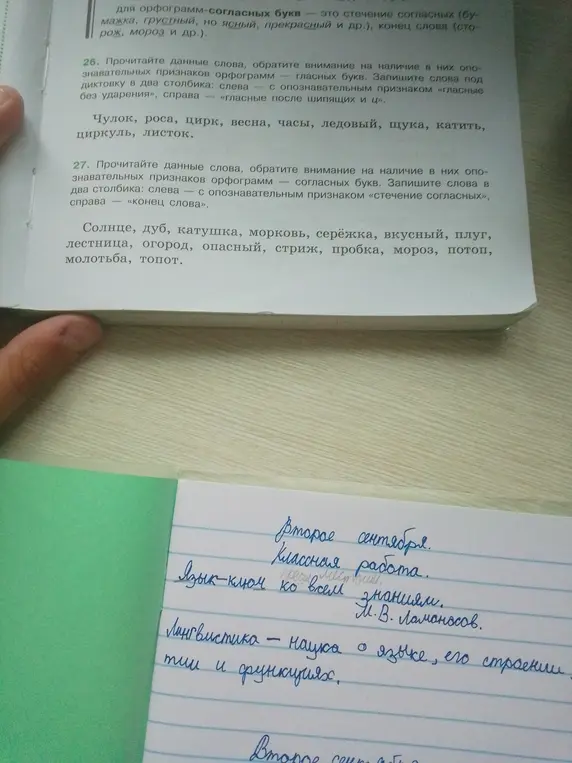 для орфограмм-согласных букв — это стечение согласных (бу-
мажка, грустный, но ясный, прекрасный и др.), конец слова (сто-
рож, мороз и др.).
26. Прочитайте данные слова, обратите внимание на наличие в них опо-
знавательных признаков орфограмм — гласных букв. Запишите слова под
диктовку в два столбика: слева — с опознавательным признаком «гласные
без ударения», справа — «гласные после шипящих и ц».
Чулок, роса, цирк, весна, часы, ледовый, щука, катить,
циркуль, листок.
27. Прочитайте данные слова, обратите внимание на наличие в них опо-
знавательных признаков орфограмм — согласных букв. Запишите слова в
два столбика: слева — с опознавательным признаком «стечение согласных»,
справа — «конец слова».
Солнце, дуб, катушка, морковь, серёжка, вкусный, плуг,
лестница, огород, опасный, стриж, пробка, мороз, потоп,
молотьба, топот.
Второе сентября.
Классная работа.
Язык-ключ ко всем знаниям.
М.В. Ломаносов.
Лингвистика — наука о языке, его строении
тии и функциях.
Второе